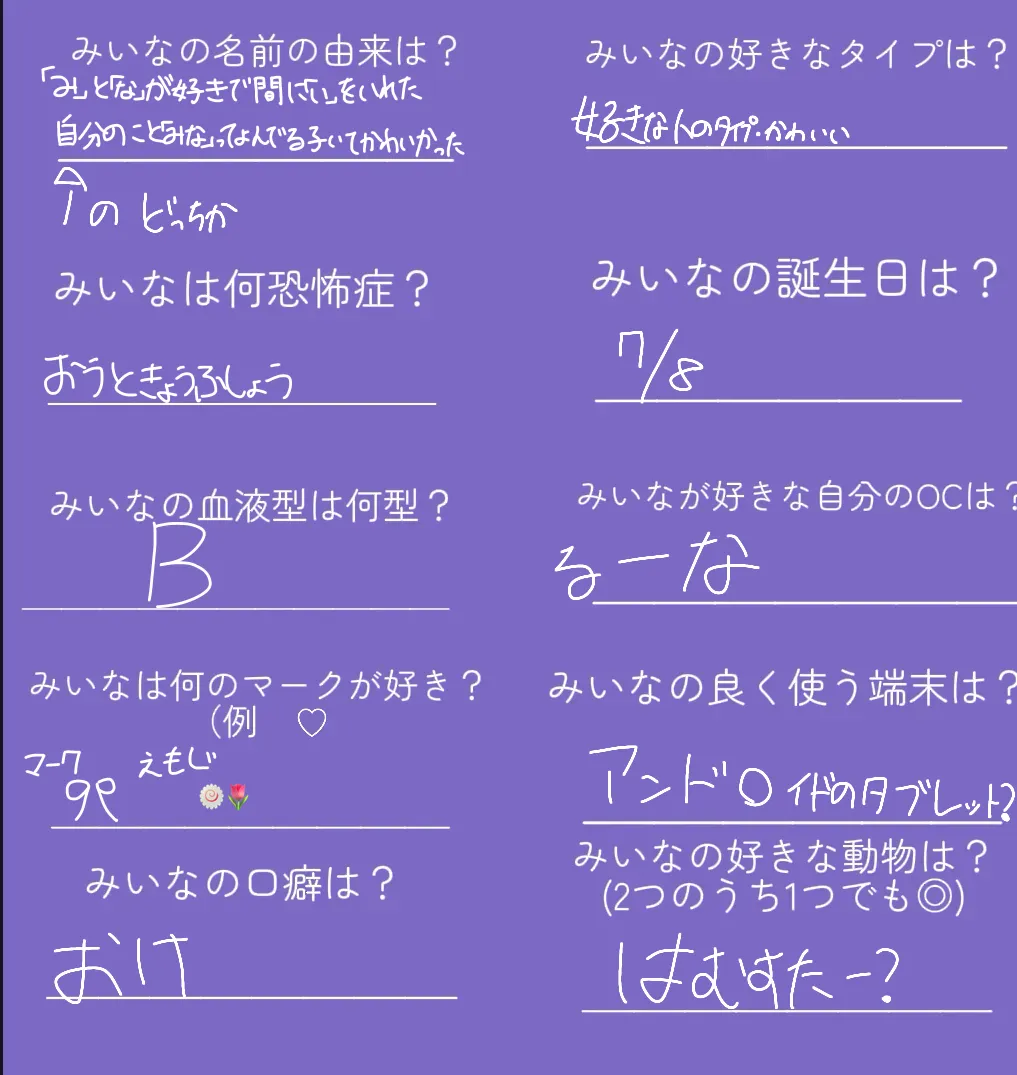 みいなの名前の由来は？
「み」と「な」が好きで間に「い」をいれた
自分のこと「みな」ってよんでる子いてかわいかった
↑のどっちか
みいなの好きなタイプは？
好きな人のタイプ・かわいい
みいなは何恐怖症？
おうときょうふしょう
みいなの誕生日は？
7/8
みいなの血液型は何型？
B
みいなが好きな自分のOCは？
るーな
みいなは何のマークが好き？
（例　♡
マーク　えもじ
୨୧　🍥🌷
みいなの良く使う端末は？
アンドロイドのタブレット?
みいなの口癖は？
おけ
みいなの好きな動物は？
(2つのうち1つでも◎)
はむすたー?